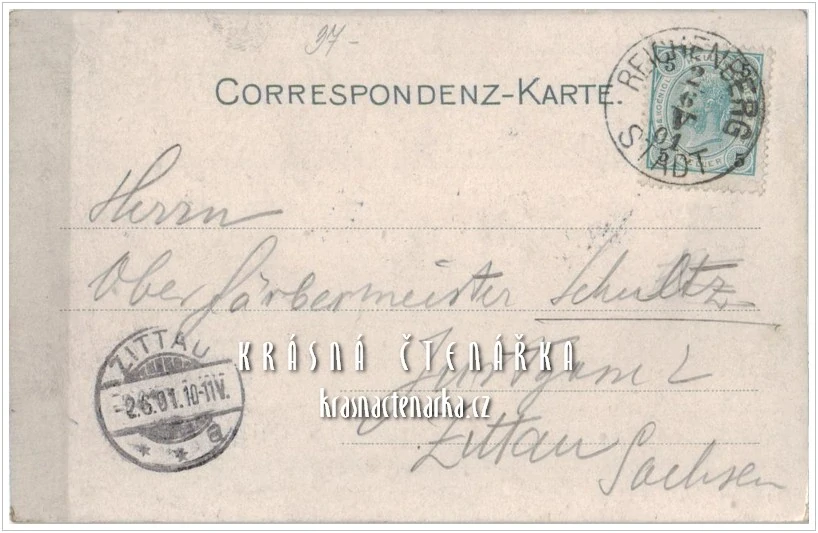 97-
CORRESPONDENZ-KARTE.
REICHENBERG
STADT
5 5
Herrn
Oberfärbermeister Schultz
ZITTAU
2.6.01.10-11V.
* * a
KRÁSNÁ ČTENÁŘKA
krasnactenarka.cz
Zittau
Sachsen